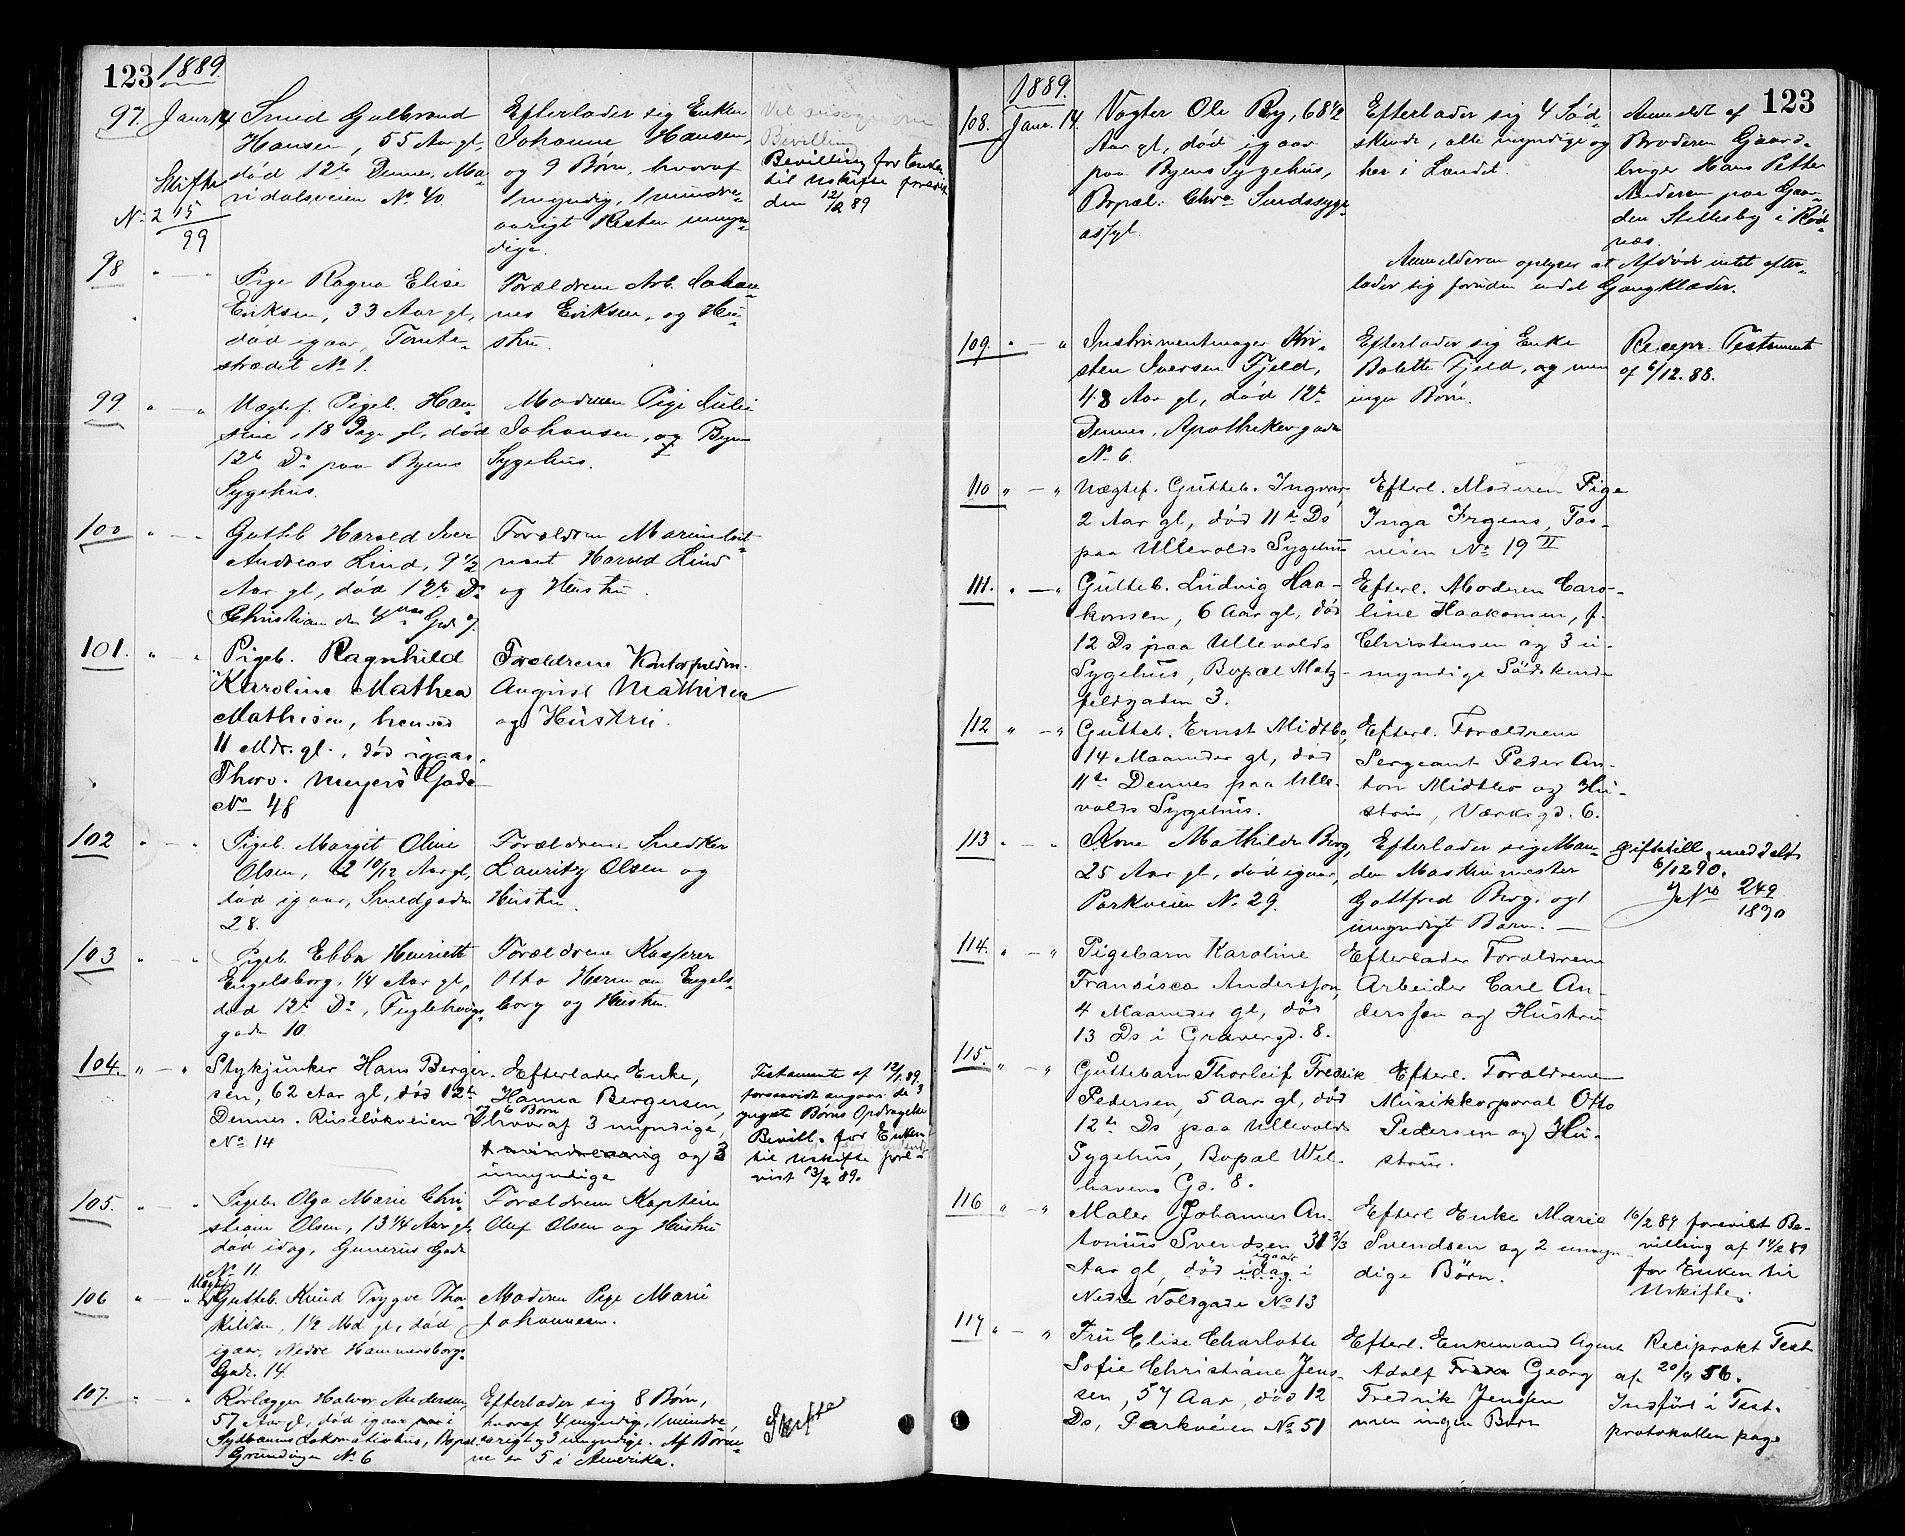 123 1889.
97. Januar 14 Smed Gulbrand
Hansen, 55 Aar gl,
død 12te Dennes, Ma-
ridalsveien No 40
Skifte
No 2 15/99
Efterlader sig Enken
Johanne Hansen,
og 9 Børn, hvoraf
1 myndig, 1 mindre-
aarigt Resten umyn-
dige.
Bevilling
Bevilling for Enken
til Uskifte forevist
den 12/2 89
98 " — " Pige Ragna Elise
Eriksen, 33 Aar gl,
død igaar, Tomte-
strædet No 1.
Forældrene Arb. Johan-
nes Eriksen, og Hu-
stru.
99 " — " Uægtef. Pigeb. Han-
sine, 18 Dage gl, død
12te Ds paa Byens
Sygehus.
Moderen Pige Julie
Johansen, og Byens
Sygehus.
100 " — " Gutteb Harald Iver
Andreas Lind, 9 1/2
Aar gl, død 12te Ds
Christian den 4des Gade 7.
Forældrene Marinelieut-
nant Harald Lind
og Hustru.
101. " — " Pigeb. Ragnhild
Karoline Mathea
Mathisen, henved
11 Mdr. gl., død igaar.
Thorv. Meyers Gade
No 48
Forældrene Kontorfuldm.
August Mathisen
og Hustru.
102 " — " Pigeb. Margit Oline
Olsen, 2 10/12 Aar gl,
død igaar, Smedgaden
28.
Forældrene Snedker
Lauritz Olsen og
Hustru.
103 " — " Pigeb. Ebba Henriette
Engelsborg, 1/4 Aar gl,
død 12te Ds, Fuglehougs-
gade 10
Forældrene Kasserer
Otto Herman Engels-
borg og Hustru.
104. " — " Stykjunker Hans Berger-
sen, 62 Aar gl, død 12te
Dennes. Ruseløkveien
No 14
Efterlader Enke,
Hanna Bergersen,
6 Børn
hvoraf 3 myndige,
1 mindreaarig og 3
umyndige
Testamente af 12/1 89,
forsaavidt angaar de 3
yngste Børns Opdragelse
Bevill. for Enken
til Uskifte fore-
vist 13/2 89.
105. " — " Pigeb. Olga Marie Chri-
stiane Olsen, 13 1/4 Aar gl,
død idag, Gunerus Gade
No 11.
Forældrene Kaptein
Oluf Olsen og Hustru
106 " — " Uægtef.
Gutteb. Knud Trygve Tho-
kildsen, 1 1/2 Md gl, død
igaar, Nedre Hammersborgs
Gade 14.
Moderen Pige Marie
Johannesen.
107. " — " Rørlægger Halvor Andersen,
57 Aar gl, død igaar i
Sydbanens Lokomotivhus, Bopæl
Grændsen No 6
Efterlader sig 8 Børn,
hvoraf 4 myndig, 1 mindre-
aarigt og 3 umyndige. Af Børne-
ne er 5 i Amerika.
Skifte
1889. 123
108. Janr. 14. Vægter Ole Ry, 68 1/2
Aar gl, død igaar
paa Byens Sygehus,
Bopæl: Chra Sindssyge-
asyl.
Efterlader sig 4 Sød-
skende, alle myndige og
her i Landet.
Anmeldt af
Broderen Gaard-
bruger Hans Petter
Andersen paa Gaar-
den Stillesby i Rød-
næs.
Anmelderen oplyser at Afdøde intet efter-
lader sig foruden endel Gangklæder.
109. " — " Instrumentmager Kri-
sten Iversen Fjeld,
48 Aar gl, død 12te
Dennes, Apothekergaden
No 6.
Efterlader sig Enke
Bolette Fjeld, og men
ingen Børn.
Recepr. Testament
af 6/12. 88.
110 " — " Uægtef. Gutteb. Ingvar,
2 Aar gl, død 11te Ds
paa Ullevolds Sygehus
Efterl. Moderen Pige
Inga Irgens, Tos-
veien No 19 II
111. " — " Gutteb. Ludvig Haa-
konsen, 6 Aar gl, død
12 Ds paa Ullevolds
Sygehus, Bopæl Motz-
feldgaden 3.
Efterl. Moderen Caro-
line Haakonsen, f.
Christensen og 3 u-
myndige Sødskende
112 " — " Gutteb. Ernst Midtbo,
14 Maaneder gl, død
11te Dennes paa Ulle-
volds Sygehus.
Efterl. Forældrene
Sergeant Peder An-
ton Midtbo og Hu-
stru, Værksgd. 6.
113 " — " Kone Mathilde Berg,
25 Aar gl, død igaar,
Parkveien No 29.
Efterlader sig Man-
den Maskinmester
Gottfred Berg. og 1
umyndigt Barn. —
Giftetill. meddelt
6/12 90.
J No 249/1890
114. " — " Pigebarn Karoline
Francisca Andersson,
4 Maaneder gl, død
13 Ds i Gravergd. 8.
Efterlader Forældrene
Arbeider Carl An-
dersson og Hustru
115. " — " Guttebarn Thorleif Fredrik
Pedersen, 5 Aar gl, død
12te Ds paa Ullevolds
Sygehus, Bopæl Wel-
havens Gd. 8.
Efterl. Forældrene
Musikkorporal Otto
Pedersen og Hu-
stru.
116 " — " Maler Johannes An-
tonius Svendsen 31 2/3
Aar gl, død igaar idag i
Nedre Voldgade No 13
Efterl Enke Marie
Svendsen og 2 umyn-
dige Børn.
16/2 89 forevist Be-
villing af 14/2 89
for Enken til
Uskifte.
117 " — " Fru Elise Charlotte
Sofie Christiane Jens-
sen, 57 Aar, død 12
Ds, Parkveien No 51
Efterl. Enkemand Agent
Adolf Georg
Fredrik Jenssen
men ingen Børn
Reciprokt Test
af 20/9 56.
Indført i Test.
protokollen page